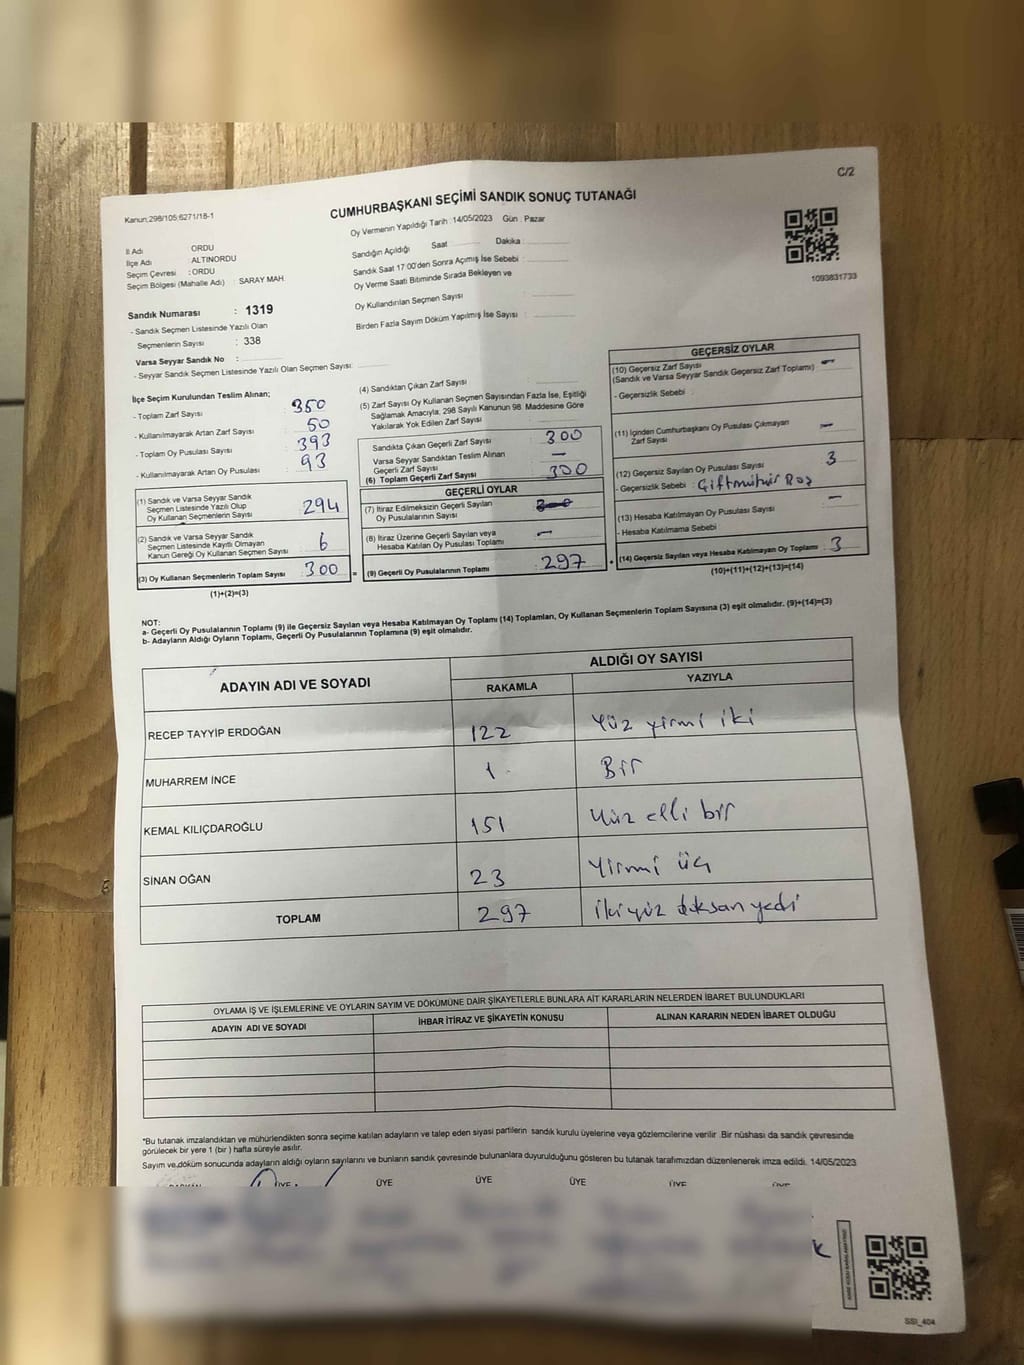 C/2
Kanun;298/105;6271/18-1
CUMHURBAŞKANI SEÇİMİ SANDIK SONUÇ TUTANAĞI
Oy Vermenin Yapıldığı Tarih :14/05/2023 Gün : Pazar
İl Adı ORDU
İlçe Adı : ALTINORDU
Seçim Çevresi : ORDU
Seçim Bölgesi (Mahalle Adı) : SARAY MAH.
Sandık Numarası : 1319
- Sandık Seçmen Listesinde Yazılı Olan
Seçmenlerin Sayısı : 338
Varsa Seyyar Sandık No :
- Seyyar Sandık Seçmen Listesinde Yazılı Olan Seçmen Sayısı:
Sandığın Açıldığı Saat Dakika :
Sandık Saat 17:00'den Sonra Açılmış İse Sebebi :
Oy Verme Saati Bitiminde Sırada Bekleyen ve
Oy Kullandırılan Seçmen Sayısı :
Birden Fazla Sayım Döküm Yapılmış İse Sayısı :
1093831733
İlçe Seçim Kurulundan Teslim Alınan;
- Toplam Zarf Sayısı : 350
- Kullanılmayarak Artan Zarf Sayısı : 50
- Toplam Oy Pusulası Sayısı : 393
- Kullanılmayarak Artan Oy Pusulası : 93
(1) Sandık ve Varsa Seyyar Sandık
Seçmen Listesinde Yazılı Olup
Oy Kullanan Seçmenlerin Sayısı 294
(2) Sandık ve Varsa Seyyar Sandık
Seçmen Listesinde Kayıtlı Olmayan
Kanun Gereği Oy Kullanan Seçmen Sayısı 6
(3) Oy Kullanan Seçmenlerin Toplam Sayısı 300
(1)+(2)=(3)
(4) Sandıktan Çıkan Zarf Sayısı :
(5) Zarf Sayısı Oy Kullanan Seçmen Sayısından Fazla İse, Eşitliği
Sağlamak Amacıyla, 298 Sayılı Kanunun 98. Maddesine Göre
Yakılarak Yok Edilen Zarf Sayısı :
Sandıkta Çıkan Geçerli Zarf Sayısı : 300
Varsa Seyyar Sandıktan Teslim Alınan
Geçerli Zarf Sayısı : —
(6) Toplam Geçerli Zarf Sayısı : 300
GEÇERLİ OYLAR
(7) İtiraz Edilmeksizin Geçerli Sayılan
Oy Pusulalarının Sayısı :
(8) İtiraz Üzerine Geçerli Sayılan veya
Hesaba Katılan Oy Pusulası Toplamı : —
= (9) Geçerli Oy Pusulalarının Toplamı : 297
GEÇERSİZ OYLAR
(10) Geçersiz Zarf Sayısı —
(Sandık ve Varsa Seyyar Sandık Geçersiz Zarf Toplamı)
- Geçersizlik Sebebi :
(11) İçinden Cumhurbaşkanı Oy Pusulası Çıkmayan
Zarf Sayısı : —
(12) Geçersiz Sayılan Oy Pusulası Sayısı : 3
- Geçersizlik Sebebi :
(13) Hesaba Katılmayan Oy Pusulası Sayısı : —
- Hesaba Katılmama Sebebi
+ (14) Geçersiz Sayılan veya Hesaba Katılmayan Oy Toplamı : 3
(10)+(11)+(12)+(13)=(14)
NOT:
a- Geçerli Oy Pusulalarının Toplamı (9) ile Geçersiz Sayılan veya Hesaba Katılmayan Oy Toplamı (14) Toplamları, Oy Kullanan Seçmenlerin Toplam Sayısına (3) eşit olmalıdır. (9)+(14)=(3)
b- Adayların Aldığı Oyların Toplamı, Geçerli Oy Pusulalarının Toplamına (9) eşit olmalıdır.
ADAYIN ADI VE SOYADI ALDIĞI OY SAYISI
RAKAMLA YAZIYLA
RECEP TAYYİP ERDOĞAN 122 Yüz yirmi iki
MUHARREM İNCE 1 Bir
KEMAL KILIÇDAROĞLU 151 Yüz elli bir
SİNAN OĞAN 23 Yirmi üç
TOPLAM 297 İki yüz doksan yedi
OYLAMA İŞ VE İŞLEMLERİNE VE OYLARIN SAYIM VE DÖKÜMÜNE DAİR ŞİKAYETLERLE BUNLARA AİT KARARLARIN NELERDEN İBARET BULUNDUKLARI
ADAYIN ADI VE SOYADI İHBAR İTİRAZ VE ŞİKAYETİN KONUSU ALINAN KARARIN NEDEN İBARET OLDUĞU
*Bu tutanak imzalandıktan ve mühürlendikten sonra seçime katılan adayların ve talep eden siyasi partilerin sandık kurulu üyelerine veya gözlemcilerine verilir .Bir nüshası da sandık çevresinde
görülecek bir yere 1 (bir ) hafta süreyle asılır.
Sayım ve döküm sonucunda adayların aldığı oyların sayılarını ve bunların sandık çevresinde bulunanlara duyurulduğunu gösteren bu tutanak tarafımızdan düzenlenerek imza edildi. 14/05/2023
ÜYE ÜYE ÜYE ÜYE ÜYE ÜYE
SSI_404